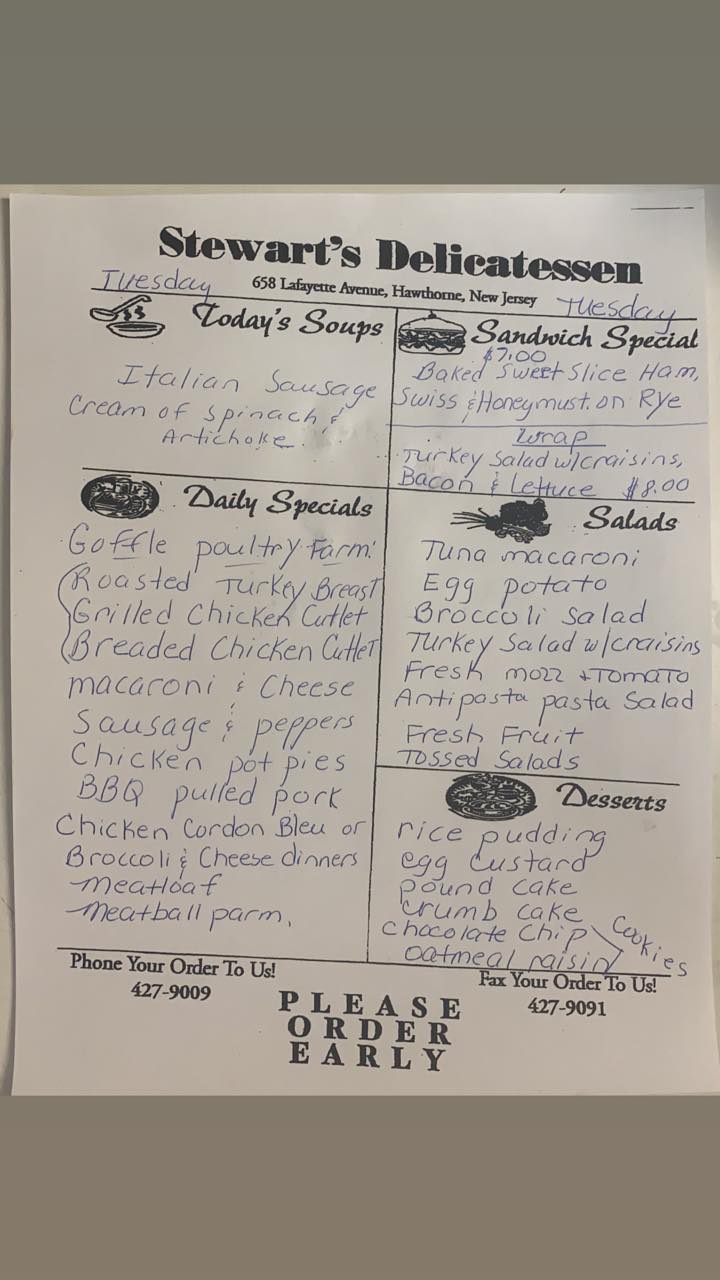 Stewart's Delicatessen
Tuesday
658 Lafayette Avenue, Hawthorne, New Jersey
Tuesday
Today's Soups
Italian Sausage
Cream of Spinach &
Artichoke
Sandwich Special
$7.00
Baked Sweet Slice Ham,
Swiss & Honeymust. on Rye
Wrap
Turkey Salad w/craisins,
Bacon & Lettuce $8.00
Daily Specials
Goffle poultry Farm:
Roasted Turkey Breast
Grilled Chicken Cutlet
Breaded Chicken Cutlet
macaroni & Cheese
Sausage & peppers
Chicken pot pies
BBQ pulled pork
Chicken Cordon Bleu or
Broccoli & Cheese dinners
meatloaf
meatball parm.
Salads
Tuna macaroni
Egg potato
Broccoli Salad
Turkey Salad w/craisins
Fresh mozz + Tomato
Antipasta pasta Salad
Fresh Fruit
Tossed Salads
Desserts
rice pudding
egg custard
pound cake
crumb cake
Chocolate Chip
oatmeal raisin
Cookies
Phone Your Order To Us!
427-9009
Fax Your Order To Us!
427-9091
PLEASE
ORDER
EARLY